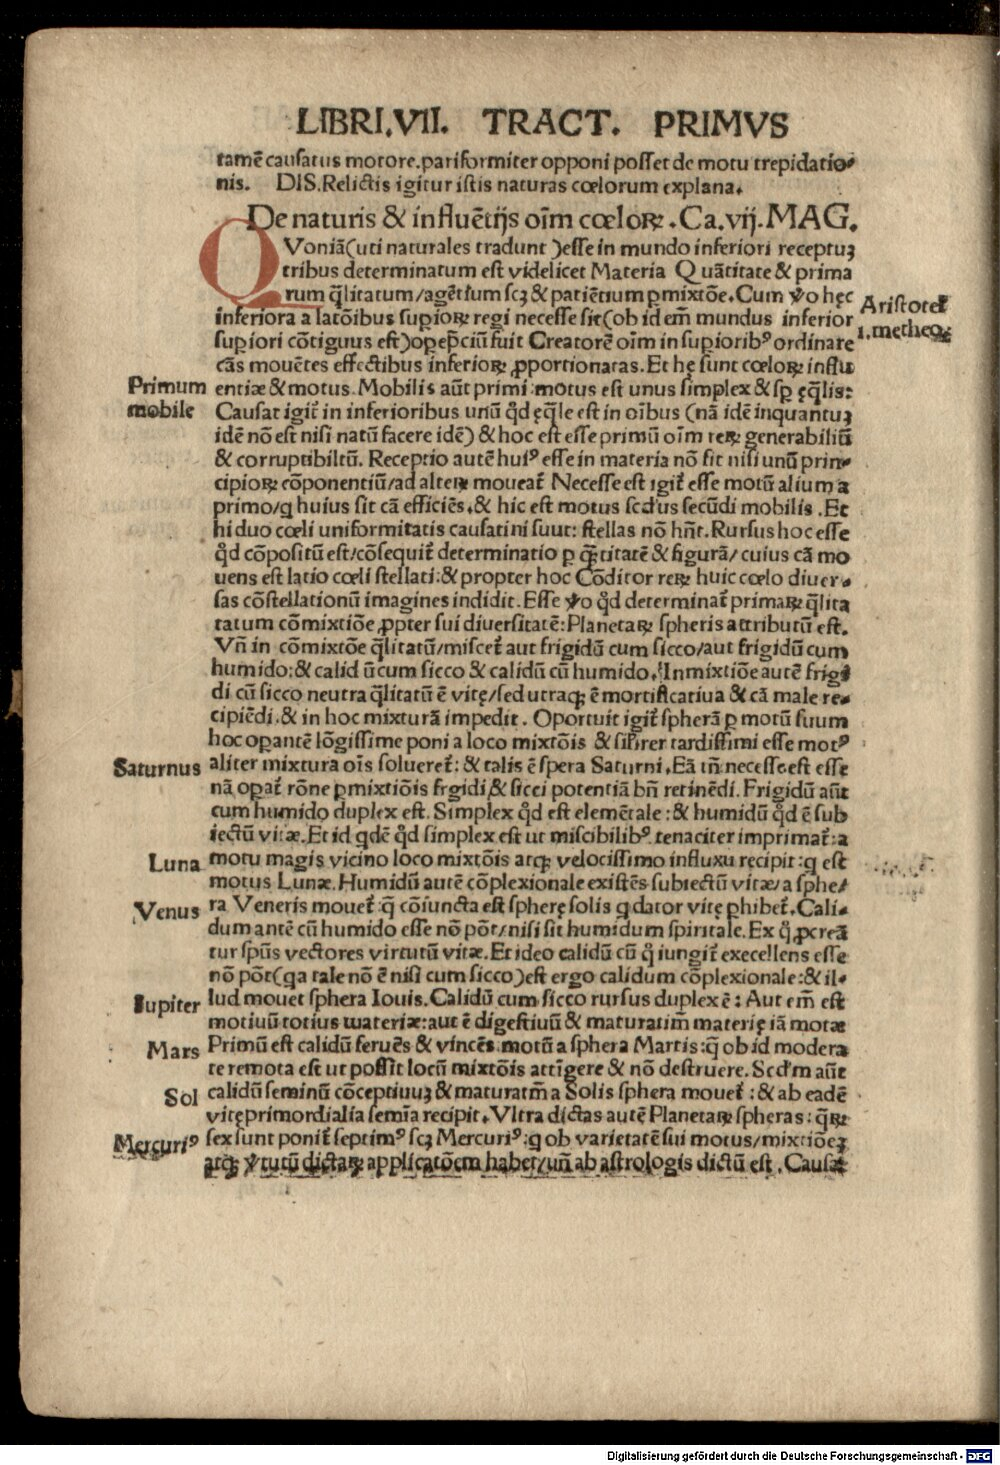 LIBRI.VII. TRACT. PRIMVS
tamē causatus motore.pariformiter opponi posset de motu trepidatio-
nis. DIS.Relictis igitur istis naturas cœlorum explana.
De naturis & influētijs oīm cœloꝝ.Ca.vij.MAG.
QVoniā(uti naturales tradunt)esse in mundo inferiori receptuꝫ
tribus determinatum est videlicet Materia Quātitate & prima
rum q̄litatum/agētium scꝫ & patiētium ꝑmixtōe.Cum ꝟo hęc
Aristotel
inferiora a latōibus suꝑioꝝ regi necesse sit(ob id em̄ mundus inferior
1.metheoꝝ
suꝑiori cōtiguus est)oꝑeꝑciū fuit Creatorē oīm in suꝑioribꝰ ordinare
cās mouētes effectibus inferioꝝ ꝓportionatas.Et hę sunt cœloꝝ influ
Primum
entiæ & motus.Mobilis aūt primi motus est unus simplex & sꝑ ęq̄lis:
mobile
Causat igit̄ in inferioribus unū qd̄ ęq̄le est in oībus (nā idē inquantuꝫ
idē nō est nisi natū facere idē) & hoc est esse primū oīm reꝝ generabiliū
& corruptibiliū. Receptio autē huiꝰ esse in materia nō fit nisi unū prin-
cipioꝝ cōponentiū/ad alteꝝ moueat̄ Necesse est igit̄ esse motū alium a
primo/q huius sit cā efficiēs.& hic est motus scd̄us secūdi mobilis.Et
hi duo cœli uniformitatis causatini suut: stellas nō hn̄t.Rursus hoc esse
qd̄ cōpositū est/cōsequit̄ determinatio ꝑ q̄titatē & figurā/cuius cā mo
uens est latio cœli stellati:& propter hoc Cōditor reꝝ huic cœlo diuer-
sas cōstellationū imagines indidit.Esse ꝟo qd̄ determinat̄ primaꝝ q̄lita
tatum cōmixtiōe ꝓpter sui diuersitatē:Planetaꝝ spheris attributū est.
Vn̄ in cōmixtōe q̄litatū/miscet̄ aut frigidū cum sicco/aut frigidū cum
humido:& calid ūcum sicco & calidū cū humido.Inmixtiōe autē frigi
di cū sicco neutra q̄litatū ē vitę/sed utraqꝫ ē mortificatiua & cā male re-
cipiēdi.& in hoc mixturā impedit. Oportuit igit̄ spherā ꝑ motū suum
hoc oꝑantē lōgissime poni a loco mixtōis & sil̄irer tardissimi esse motꝰ
Saturnus
aliter mixtura oīs solueret̄: & talis ē spera Saturni.Eā tn̄ necesse est esse
nā oꝑat̄ rōne ꝑmixtiōis frgidi & sicci potentiā bn̄ retinēdi.Frigidū aūt
cum humido duplex est. Simplex qd̄ est elemētale:& humidū qd̄ ē sub
iectū vitæ.Et id qdē qd̄ simplex est ut miscibilibꝰ tenaciter imprimat̄:a
Luna
motu magis vicino loco mixtōis atqꝫ velocissimo influxu recipit:q est
motus Lunæ.Humidū autē cōplexionale existēs subiectū vitæ/a sphe/
Venus
ra Veneris mouet̄ q̄ cōiuncta est spherę solis q dator vitę ꝑhibet̄.Cali-
dum antē cū humido esse nō pōt/nisi sit humidum spiritale.Ex q̊ ꝓcreā
tur spūs vectores virtutū vitæ.Et ideo calidū cū q̊ iungit̄ execellens esse
nō pōt(qa tale nō ē nisi cum sicco)est ergo calidum cōplexionale:& il-
Iupiter
lud mouet sphera Iouis.Calidū cum sicco rursus duplex ē: Aut em̄ est
motiuū totius wateriæ:aut ē digestiuū & maturatim̄ materię iā motæ
Mars
Primū est calidū feruēs & vincēs motū a sphera Martis:q̄ ob id modera
te remota est ut possit locū mixtōis attīgere & nō destruere.Scd̄m aūt
Sol
calidū seminū cōceptiuuꝫ & maturatm̄ a Solis sphera mouet̄:& ab eadē
vitę primordialia semīa recipit.Vltra dictas autē Planetaꝝ spheras:q̄ꝝ
Mercuriꝰ
sex sunt ponit̄ septimꝰ scꝫ Mercuriꝰ:q ob varietatē sui motus/mixtiōeꝫ
atqꝫ ꝟtutū dictaꝝ applicatōem habet/un̄ ab astrologis dictū est.Causat